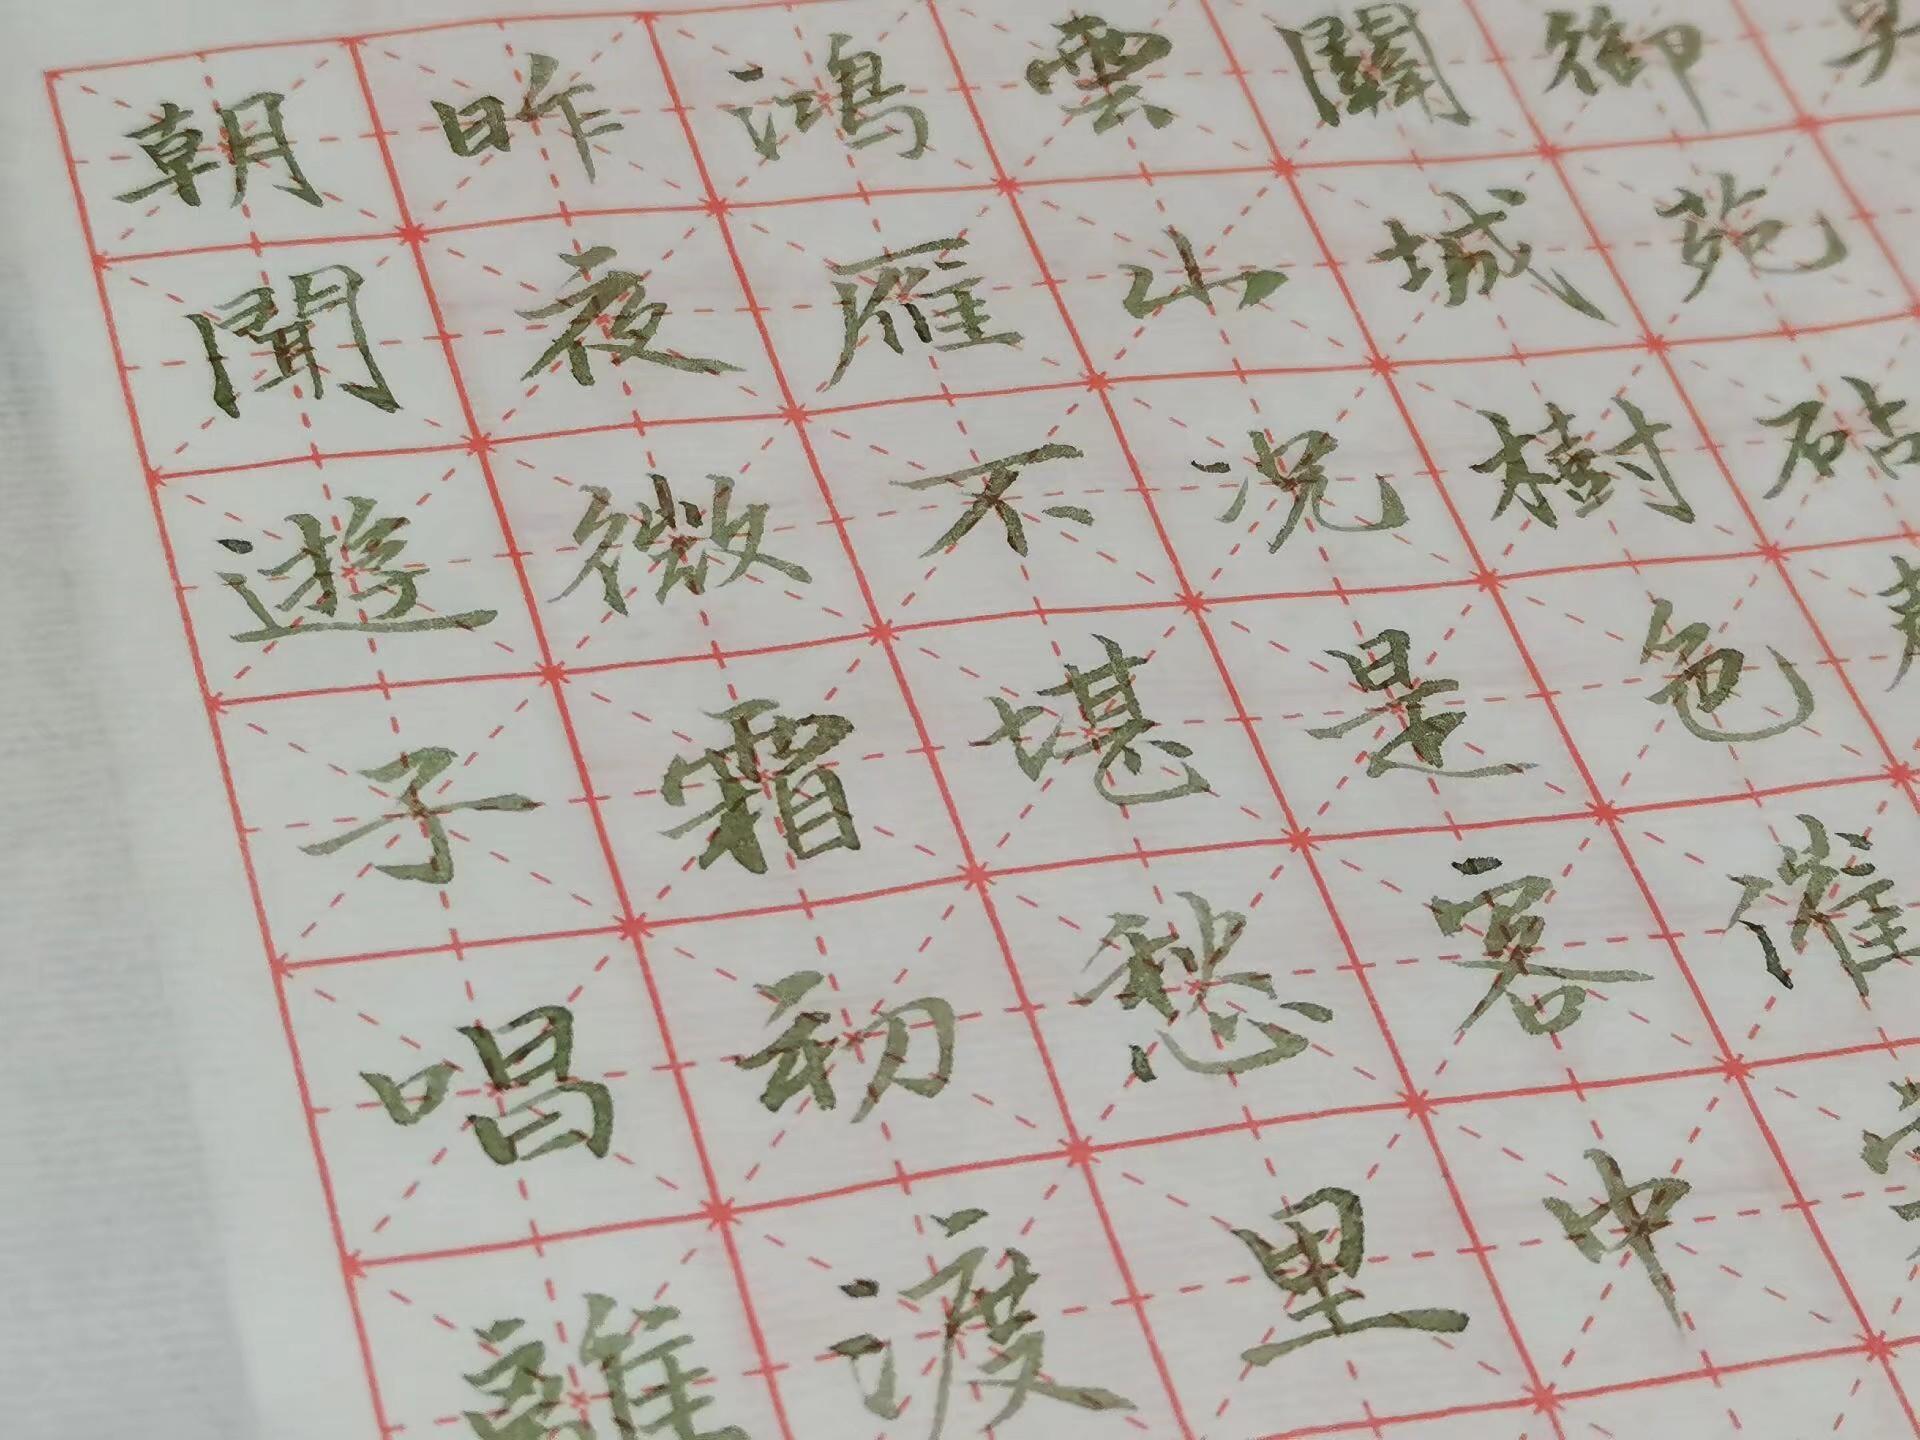 朝聞遊子唱離
昨夜微霜初渡
鴻雁不堪愁里
雲山况是客中
關城樹色催
御苑砧